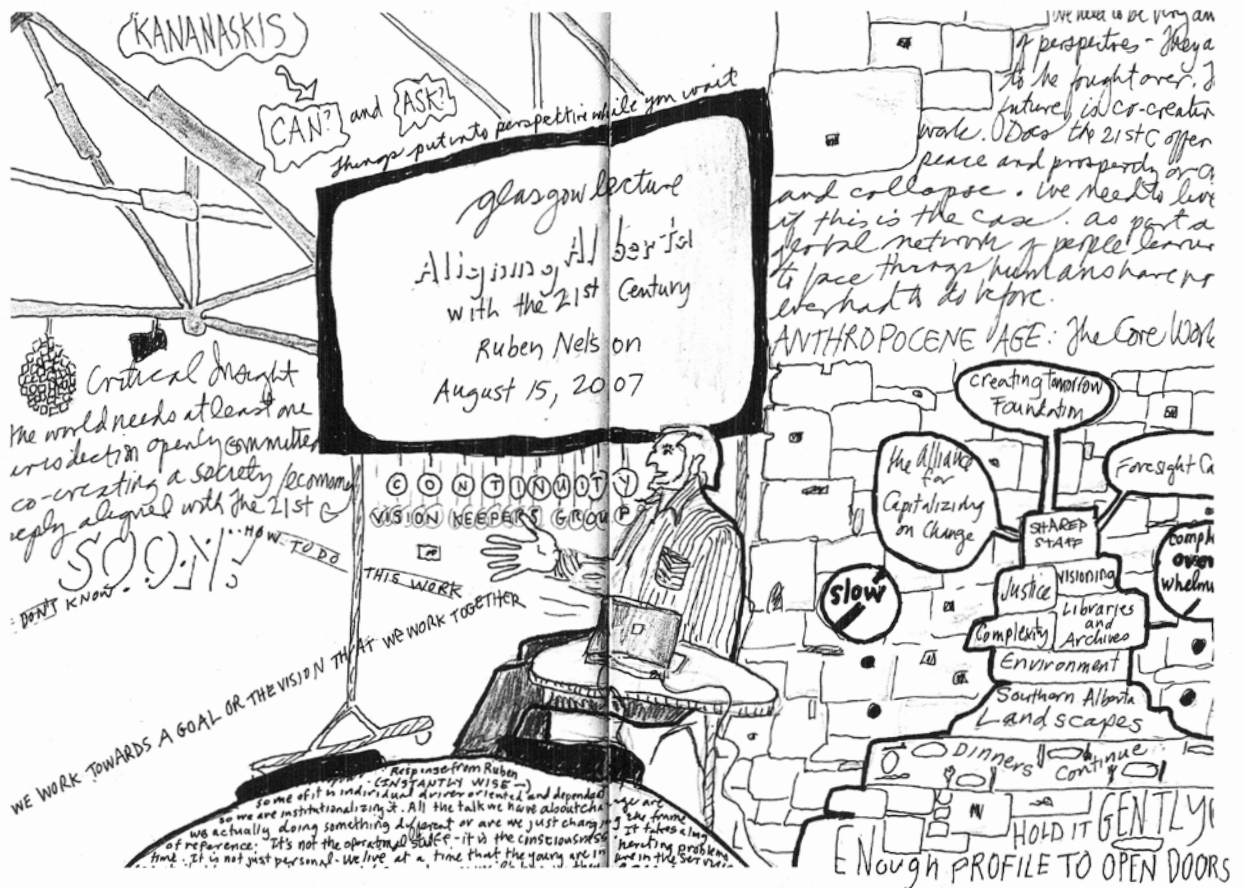 KANANASKIS
CAN? and ASK?
things put into perspective while you wait
glasgow lecture
Aligning Alberta
with the 21st Century
Ruben Nelson
August 15, 2007
CONTINUITY
VISION KEEPERS GROUP
Critical Insight
the world needs at least one
openly committed
co-creating a society/economy
aligned with the 21st C
SOON!
DON'T KNOW. HOW TO DO THIS WORK
WE WORK TOWARDS A GOAL OR THE VISION THAT WE WORK TOGETHER
Response from Ruben
(INSTANTLY WISE -)
some of it is individual driven oriented and
so we are institutionalizing it. All the talk we have about change are
we actually doing something different or are we just changing the frame
of referance. It's not the operational stuff - it is the consciousness It takes a long
time. It is not just personal. We live at a time that the young are in
we need to be
of perspectives - they
to be fought over.
future is co-creation
work. Does the 21st C offer
peace and prosperity or
and collapse. We need to live
if this is the case. as part a
global network of people
to face things humans have
ever had to do before.
ANTHROPOCENE AGE: The Core Work
Creating Tomorrow
Foundation
the Alliance
for
Capitalizing
on Change
Foresight Ca
SHARED
STAFF
slow
over
whelm
Justice
Visioning
Complexity
Libraries
and
Archives
Environment
Southern Alberta
Landscapes
Dinners Continue
HOLD IT GENTLY
ENough PROFILE TO OPEN DOORS